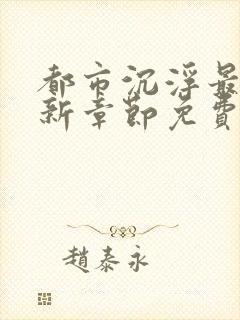 都市沉浮最
新章節免費
趙泰永